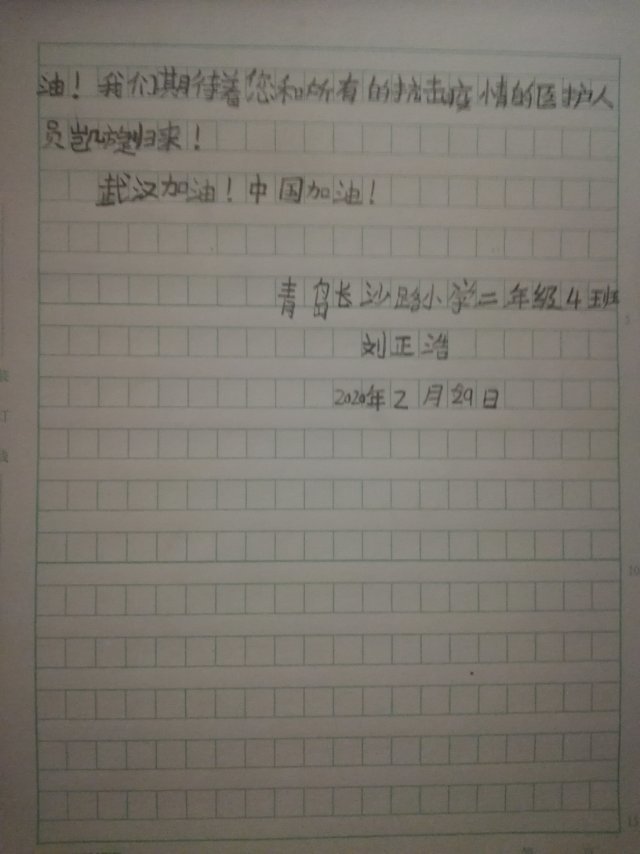 油！我们期待着您和所有的抗击疫情的医护人
员凯旋归来！
武汉加油！中国加油！
青岛长沙路小学二年级4班
刘正浩
2020年2月29日
装
订
线
10
15